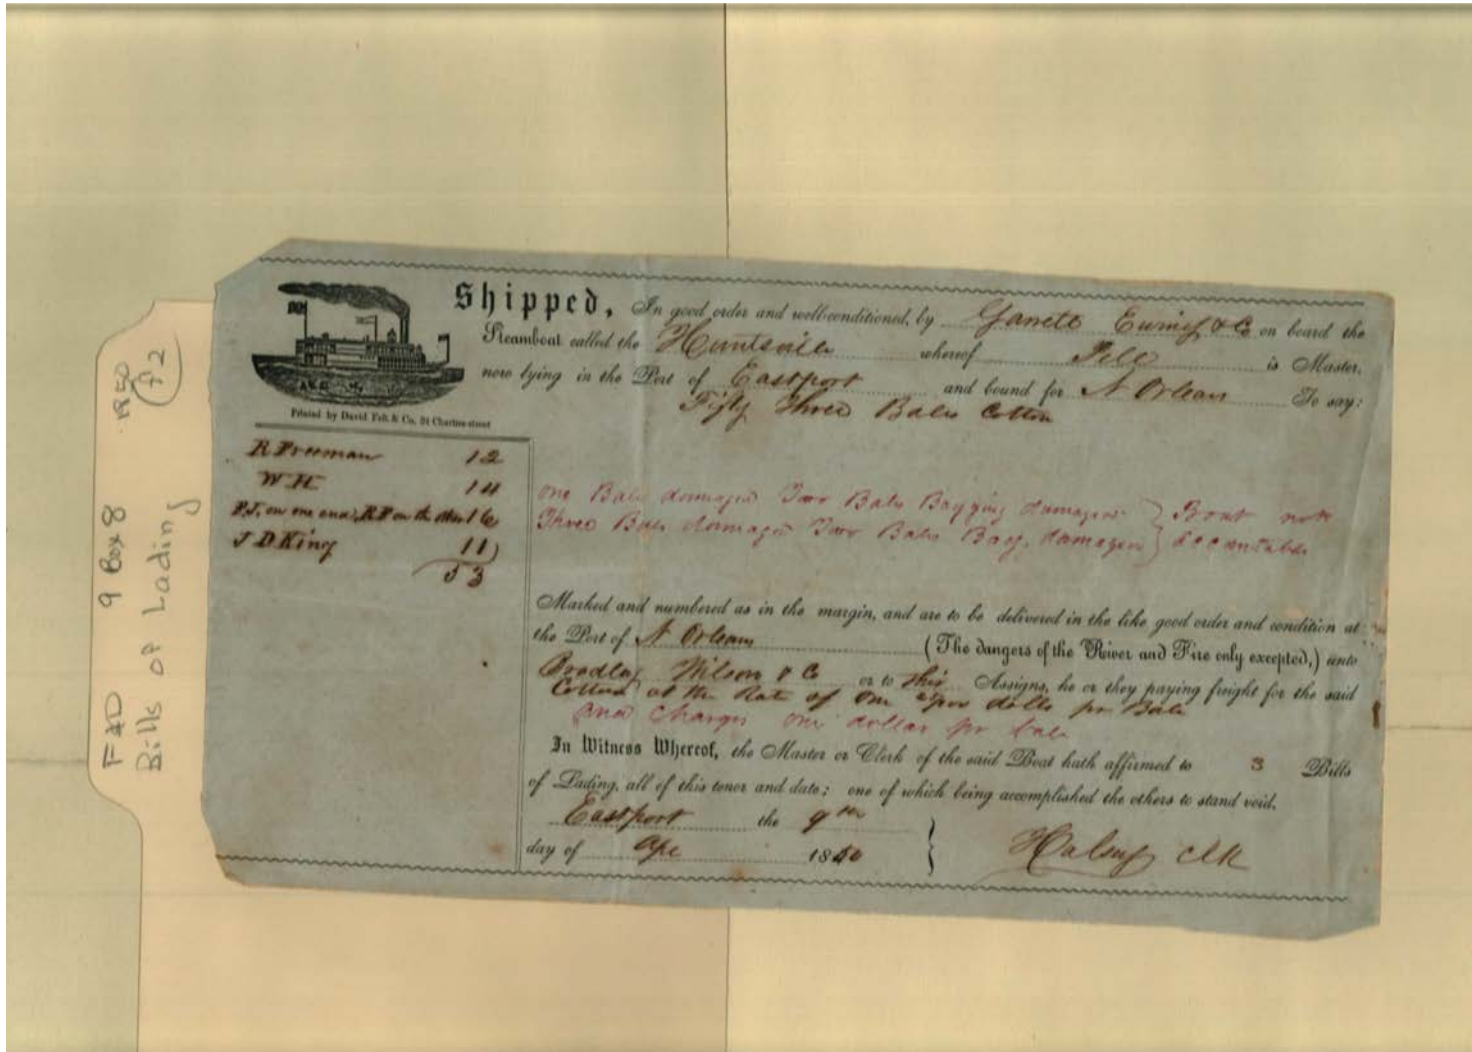 Shipped, In good order and well-conditioned, by Garrett & Co on board the
Steamboat called the Huntsville whereof Pell is Master,
now lying in the Port of Eastport and bound for N Orleans To say:
Fifty Three Bales Cotton
Printed by David Felt & Co. 24 Chartres-street
R Freeman 12
W H 14
P.J. on one end, R.P on the other 16
J D King 11
53
One Bale damaged Two Bales Bagging damaged } Boat not
Three Bales damaged Two Bales Bagg. damaged } accountable
Marked and numbered as in the margin, and are to be delivered in the like good order and condition at
the Port of N Orleans (The dangers of the River and Fire only excepted,) unto
Bradley Wilson & Co or to their Assigns, he or they paying freight for the said
Cotton at the Rate of One dolls pr Bale
and Charges one dollar pr bale
In Witness Whereof, the Master or Clerk of the said Boat hath affirmed to 3 Bills
of Lading, all of this tenor and date; one of which being accomplished the others to stand void.
Eastport the 9th
day of Apl 1850
Halsey Clk
F&D 9 Box 8 1850
Bills of Lading f2